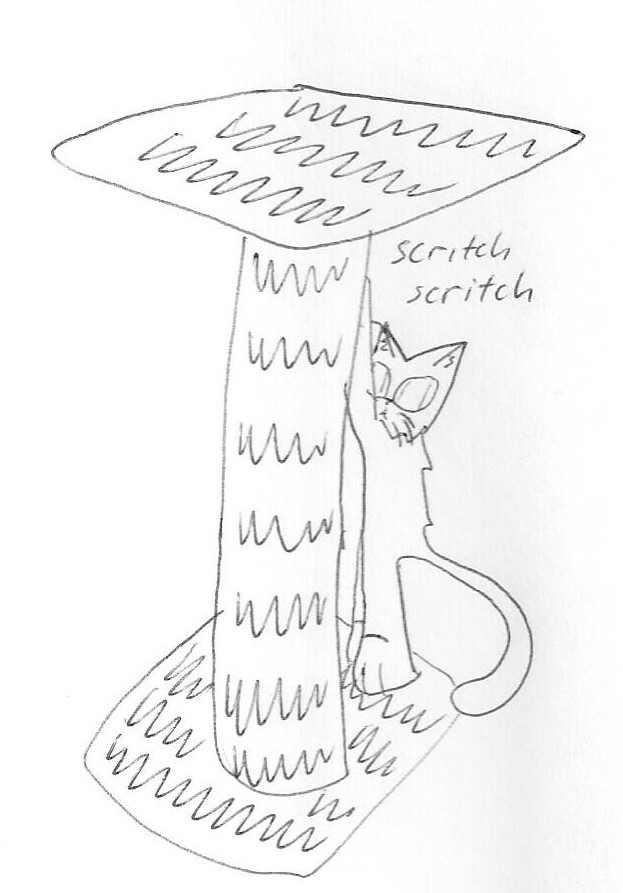 scritch
scritch